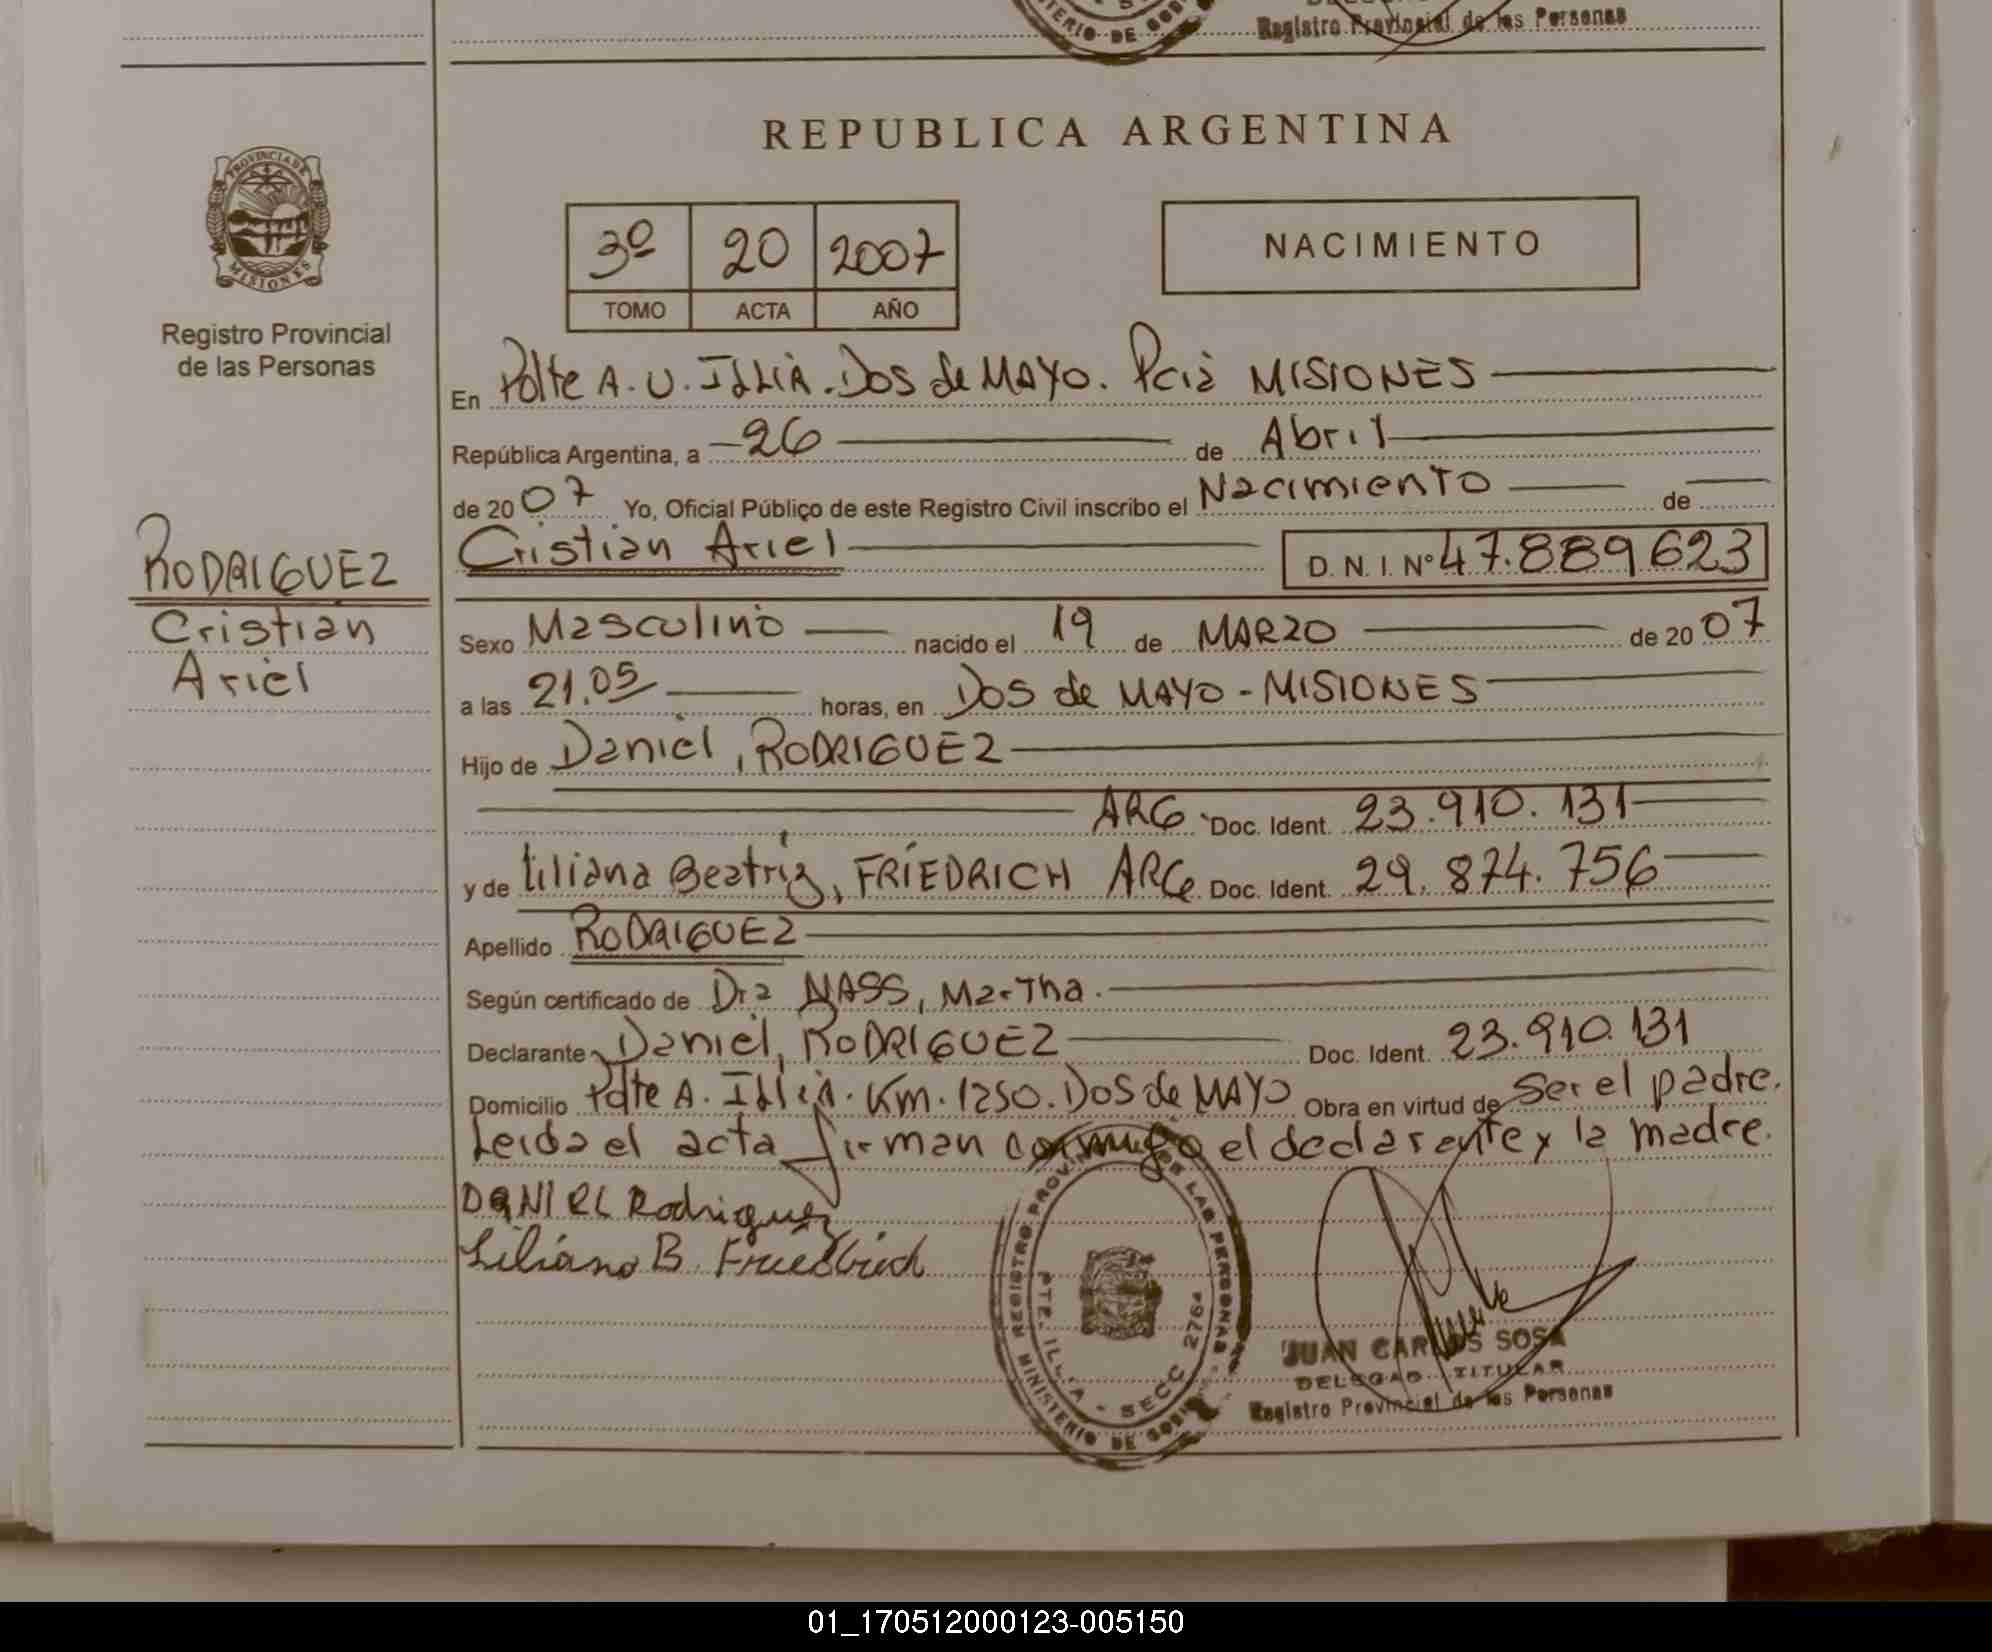 Registro Provincial de las Personas
REPUBLICA ARGENTINA
PROVINCIA DE
MISIONES
Registro Provincial
de las Personas
3º 20 2007
TOMO ACTA AÑO
NACIMIENTO
En Pdte A. U. ILLIA. Dos de MAYO. Pcia MISIONES
República Argentina, a 26 de Abril
de 2007 Yo, Oficial Público de este Registro Civil inscribo el Nacimiento de
RODRIGUEZ
Cristian
Ariel
Cristian Ariel D. N. I. Nº 47.889623
Sexo Masculino nacido el 19 de MARZO de 2007
a las 21.05 horas, en Dos de MAYO - MISIONES
Hijo de Daniel, RODRIGUEZ
ARG. Doc. Ident. 23.910.131
y de Liliana Beatriz, FRIEDRICH ARG. Doc. Ident. 29.874.756
Apellido RODRIGUEZ
Según certificado de Dra NASS, Martha.
Declarante Daniel, RODRIGUEZ Doc. Ident. 23.910.131
Domicilio Pdte A. Illia. Km. 1250. Dos de MAYO Obra en virtud de Ser el padre.
Leida el acta firman conmigo el declarante y la madre.
DANIEL Rodriguez
Liliana B. Friedrich
REGISTRO PROVINCIAL DE LAS PERSONAS
PTE. ILLIA - SECC 2764
MINISTERIO DE GOB
JUAN CARLOS SOSA
DELEGADO TITULAR
Registro Provincial de las Personas
01_170512000123-005150